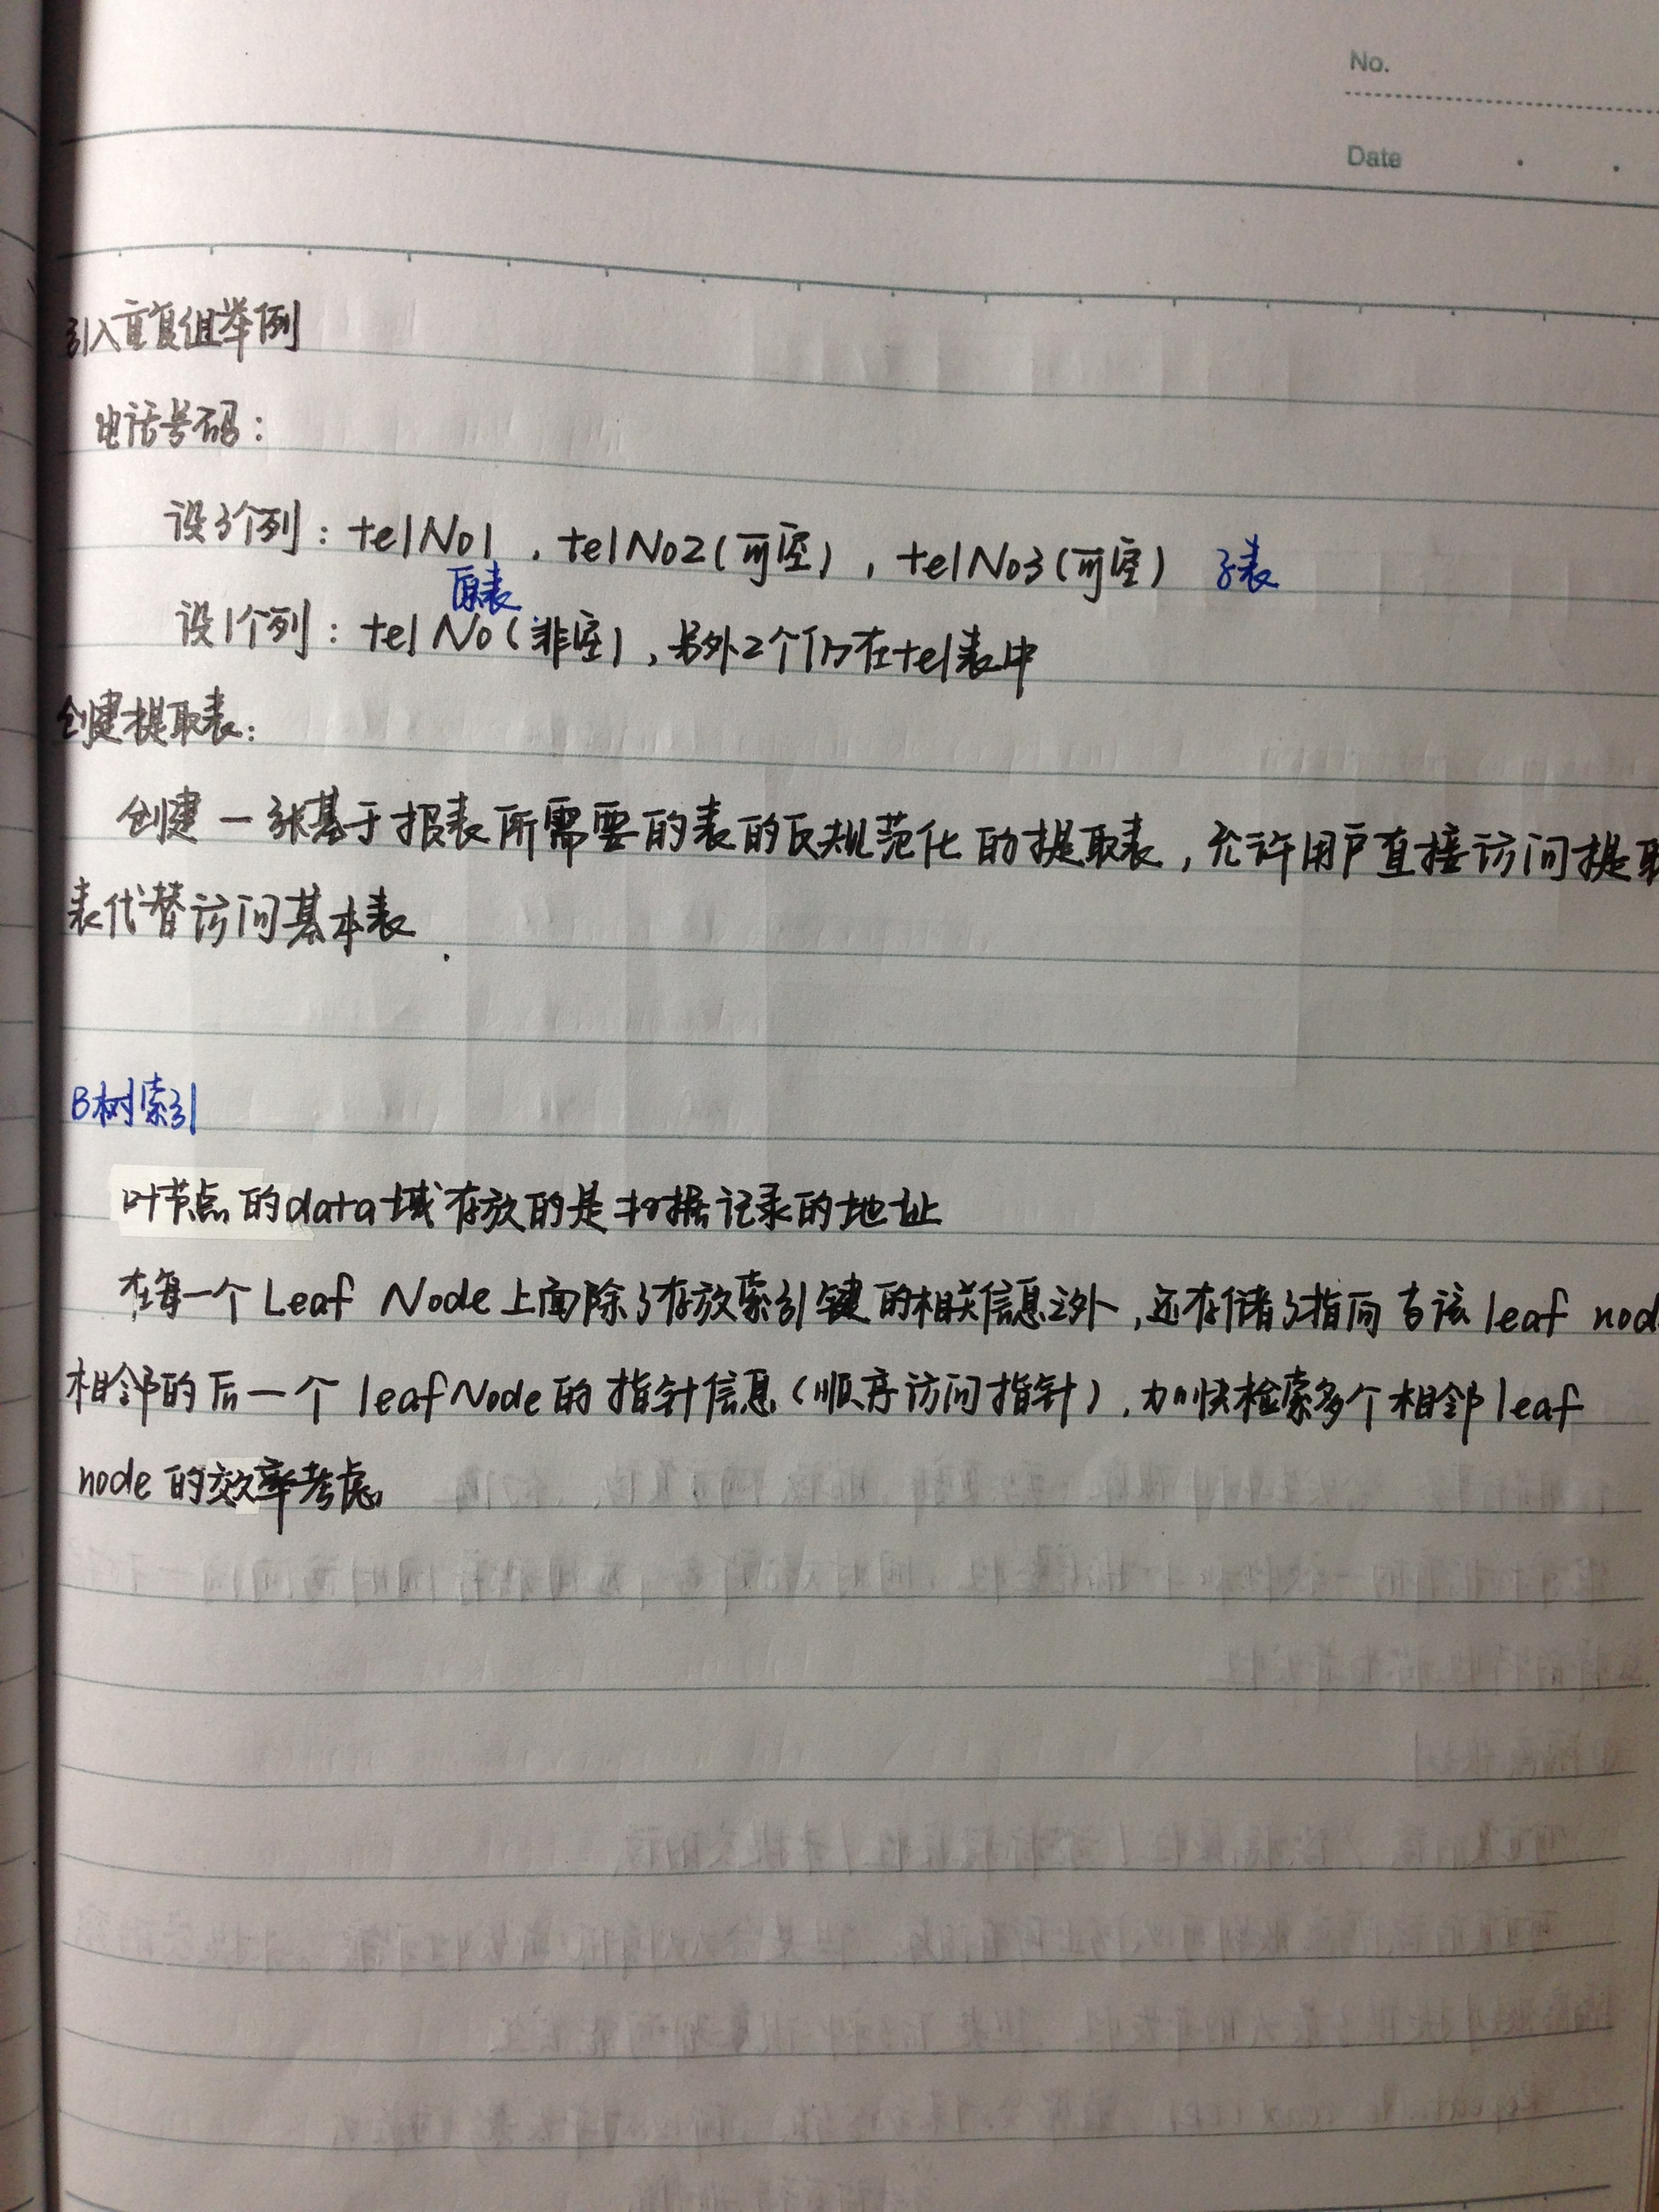 No.
Date
引入重复组举例
电话号码：
设3个列：telNo1，telNo2（可空），telNo3（可空） 子表
原表
设1个列：telNo（非空），另外2个仍在tel表中
创建提取表：
创建一张基于报表所需要的表的反规范化的提取表，允许用户直接访问提取
表代替访问基本表.
B树索引
叶节点的data域存放的是数据记录的地址
在每一个Leaf Node上面除了存放索引键的相关信息之外，还存储了指向与该leaf nod
相邻的后一个leafNode的指针信息（顺序访问指针），加快检索多个相邻leaf
node的效率考虑